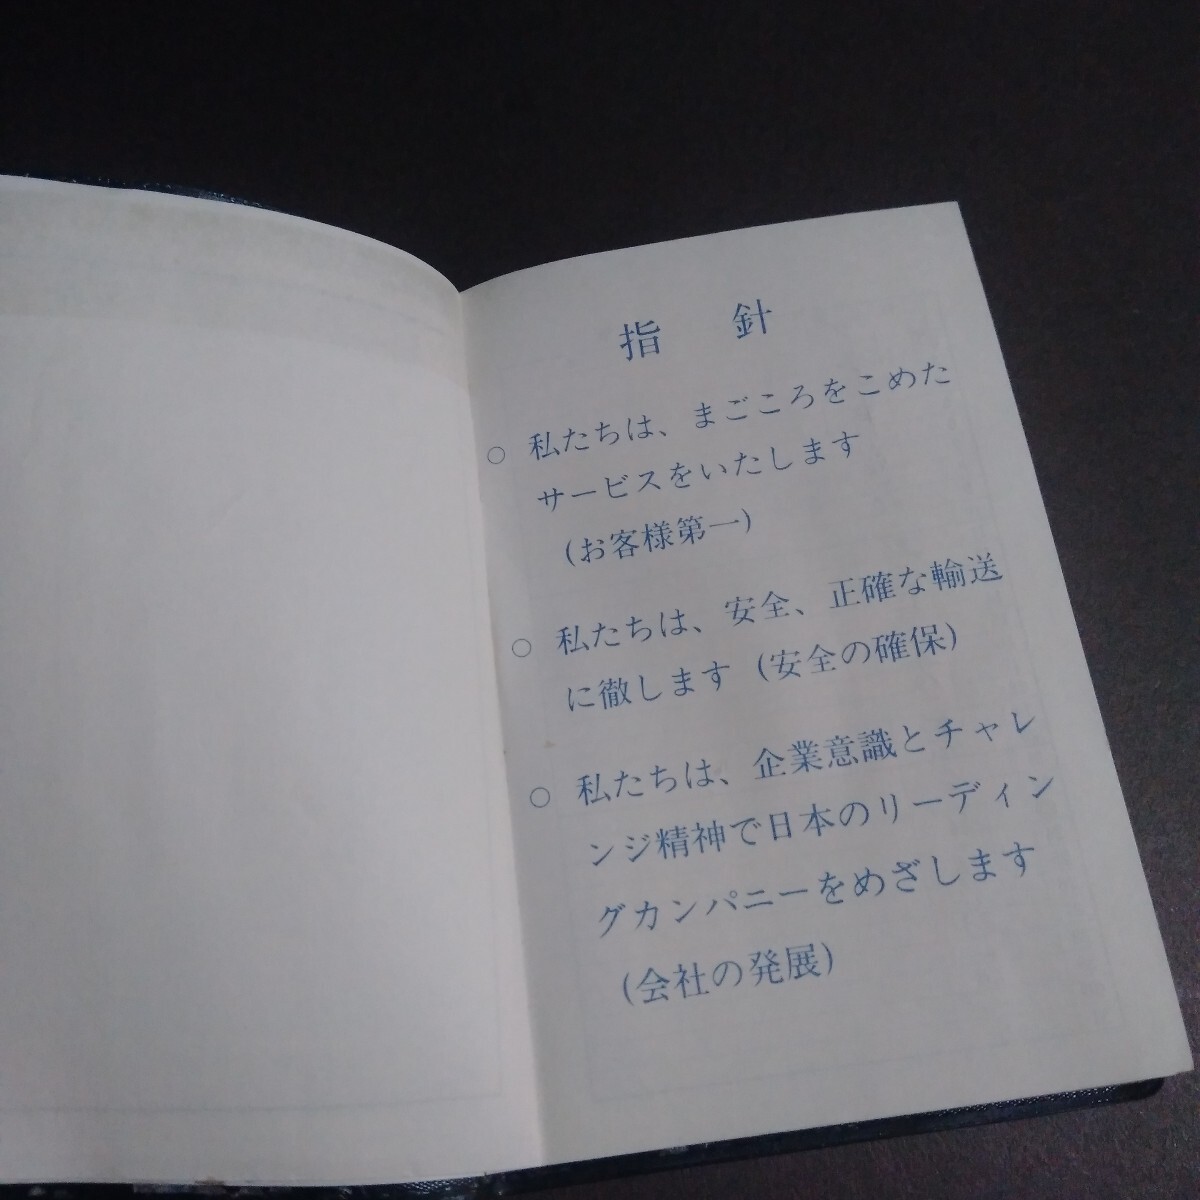 指 針
○ 私たちは、まごころをこめた
サービスをいたします
(お客様第一)
○ 私たちは、安全、正確な輸送
に徹します (安全の確保)
○ 私たちは、企業意識とチャレ
ンジ精神で日本のリーディン
グカンパニーをめざします
(会社の発展)